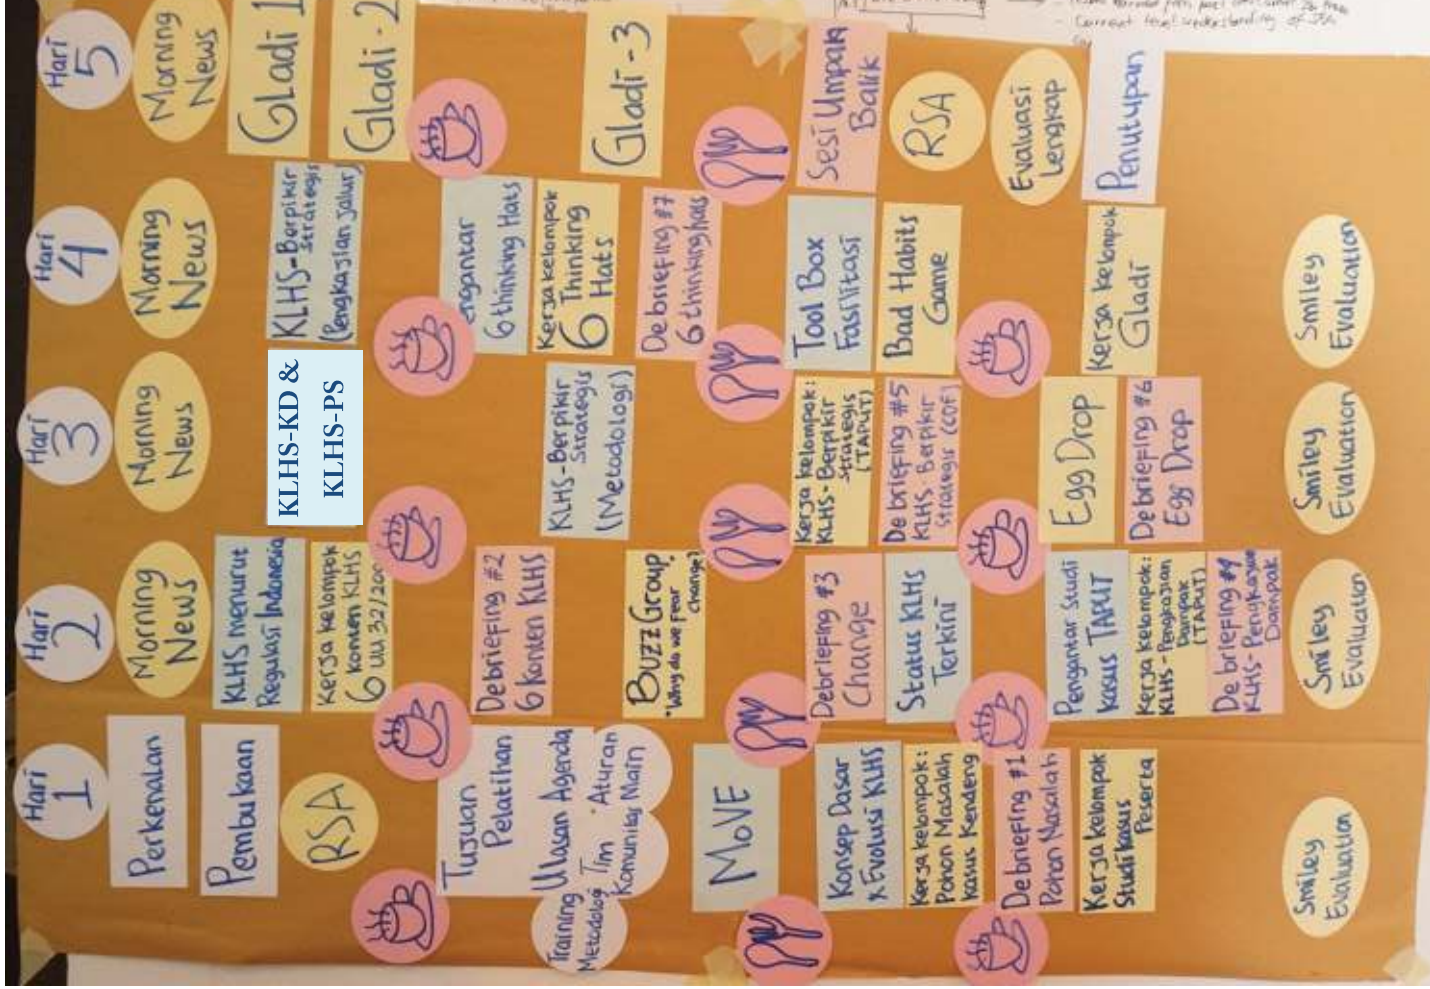 Hari
1
Perkenalan
Pembukaan
RSA
Tujuan
Pelatihan
Ulasan Agenda
Training
Metodologi
Tim
Komunitas
Aturan
Main
MOVE
Konsep Dasar
& Evolusi KLHS
Kerja kelompok:
Pohon Masalah
Kasus Kendeng
Debriefing #1
Pohon Masalah
Kerja kelompok
Studi kasus
Peserta
Smiley
Evaluation
Hari
2
Morning
News
KLHS menurut
Regulasi Indonesia
Kerja kelompok
6 Konten KLHS
UU 32/200
Debriefing #2
6 Konten KLHS
Buzz Group:
"Why do we fear
change?
Debriefing #3
Change
Status KLHS
Terkini
Pengantar Studi
Kasus TAPUT
Kerja kelompok:
KLHS-Pengkajian
Dampak
(TAPUT)
Debriefing #4
KLHS-Pengkajian
Dampak
Smiley
Evaluation
Hari
3
Morning
News
KLHS-KD &
KLHS-PS
KLHS-Berpikir
Strategis
(Metodologi)
Kerja kelompok:
KLHS-Berpikir
Strategis
(TAPUT)
Debriefing #5
KLHS. Berpikir
Strategis (COF)
Egg Drop
Debriefing #6
Egg Drop
Smiley
Evaluation
Hari
4
Morning
News
KLHS-Berpikir
Strategis
(Pengkajian Jalur)
engantar
6 thinking Hats
Kerja kelompok
6 Thinking
Hats
Debriefing #7
6 thinking hats
Tool Box
Fasilitasi
Bad Habits
Game
Kerja Kelompok
Gladi
Smiley
Evaluation
Hari
5
Morning
News
Gladi 1
Gladi - 2
Gladi - 3
Sesi Umpan
Balik
RSA
Evaluasi
Lengkap
Penutupan